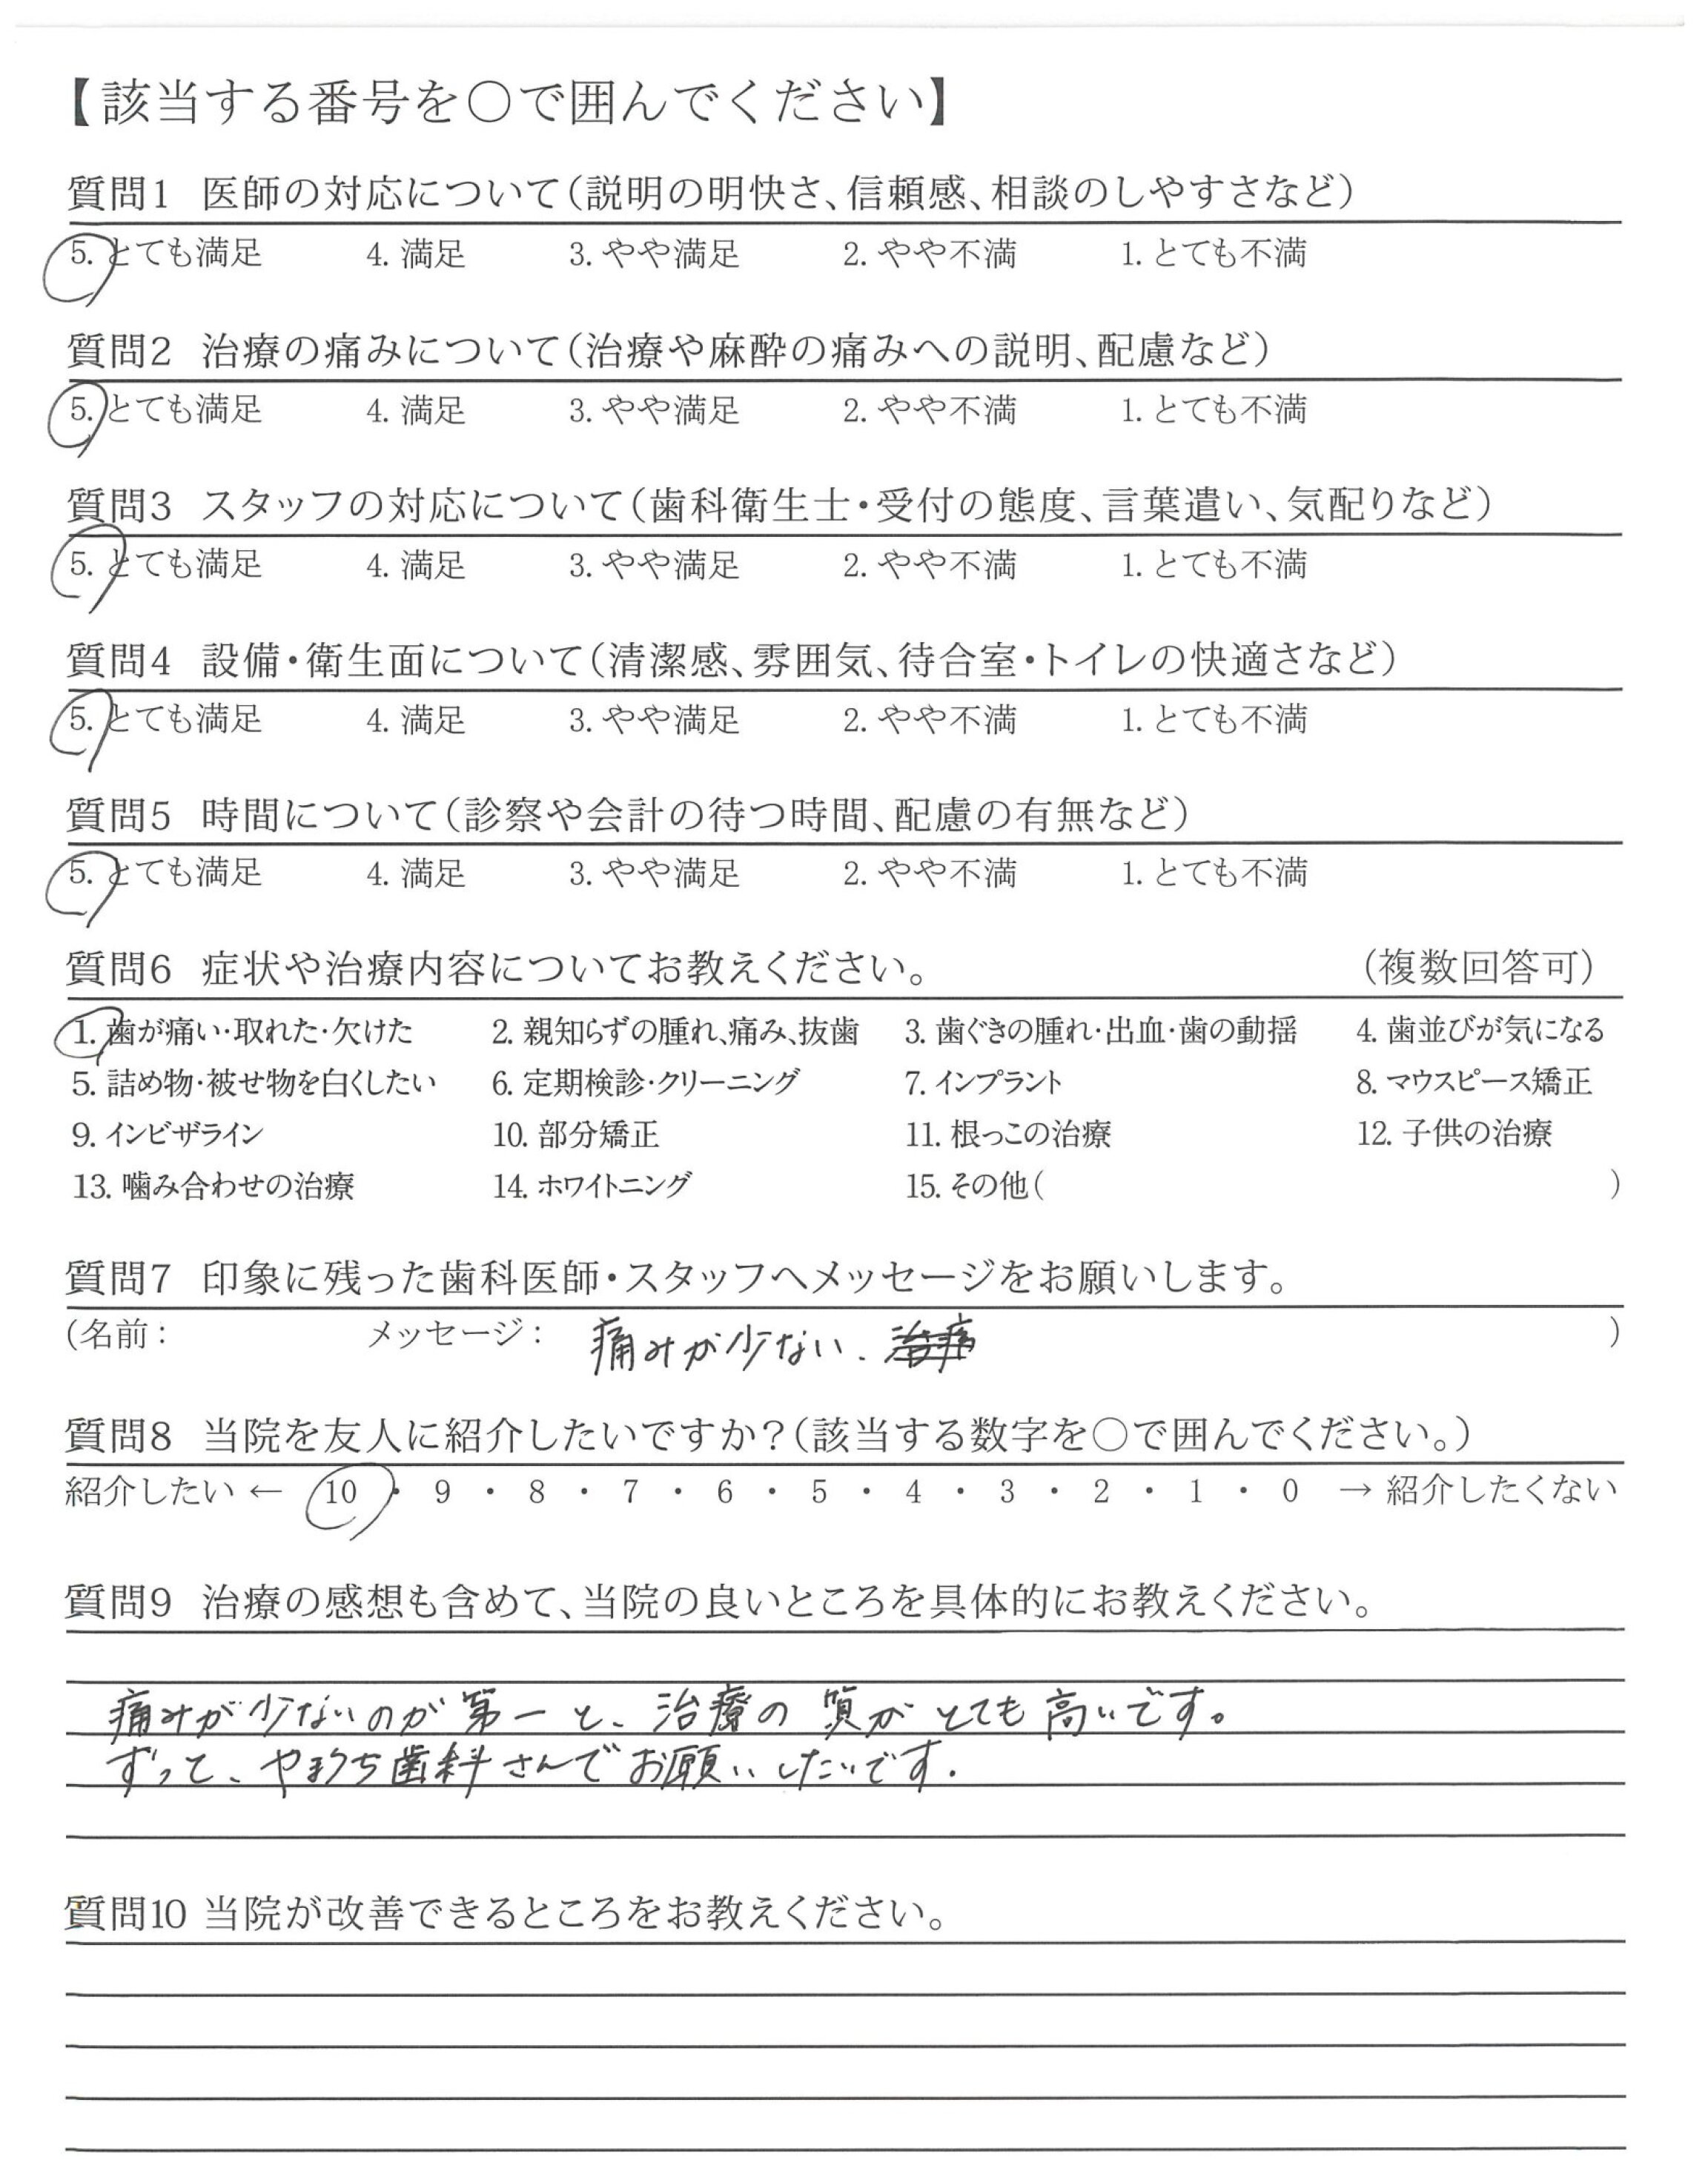 【該当する番号を○で囲んでください】
質問1 医師の対応について(説明の明快さ、信頼感、相談のしやすさなど)
5. とても満足 4. 満足 3. やや満足 2. やや不満 1. とても不満
質問2 治療の痛みについて(治療や麻酔の痛みへの説明、配慮など)
5. とても満足 4. 満足 3. やや満足 2. やや不満 1. とても不満
質問3 スタッフの対応について(歯科衛生士・受付の態度、言葉遣い、気配りなど)
5. とても満足 4. 満足 3. やや満足 2. やや不満 1. とても不満
質問4 設備・衛生面について(清潔感、雰囲気、待合室・トイレの快適さなど)
5. とても満足 4. 満足 3. やや満足 2. やや不満 1. とても不満
質問5 時間について(診察や会計の待つ時間、配慮の有無など)
5. とても満足 4. 満足 3. やや満足 2. やや不満 1. とても不満
質問6 症状や治療内容についてお教えください。 (複数回答可)
1. 歯が痛い・取れた・欠けた 2. 親知らずの腫れ、痛み、抜歯 3. 歯ぐきの腫れ・出血・歯の動揺 4. 歯並びが気になる
5. 詰め物・被せ物を白くしたい 6. 定期検診・クリーニング 7. インプラント 8. マウスピース矯正
9. インビザライン 10. 部分矯正 11. 根っこの治療 12. 子供の治療
13. 噛み合わせの治療 14. ホワイトニング 15. その他( )
質問7 印象に残った歯科医師・スタッフへメッセージをお願いします。
(名前: メッセージ: 痛みが少ない. )
質問8 当院を友人に紹介したいですか?(該当する数字を○で囲んでください。)
紹介したい ← 10 ・ 9 ・ 8 ・ 7 ・ 6 ・ 5 ・ 4 ・ 3 ・ 2 ・ 1 ・ 0 → 紹介したくない
質問9 治療の感想も含めて、当院の良いところを具体的にお教えください。
痛みが少ないのが第一と、治療の質がとても高いです。
ずって、 歯科さんでお願いしたいです.
質問10 当院が改善できるところをお教えください。